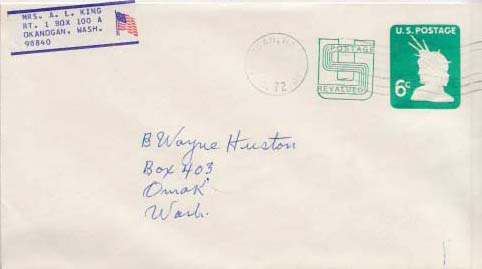 MRS. A. L. KING
RT. 1 BOX 100 A
OKANOGAN, WASH.
98840
72
POSTAGE
REVALUED
U.S. POSTAGE
6c
B Wayne Huston
Box 403
Omak
Wash.